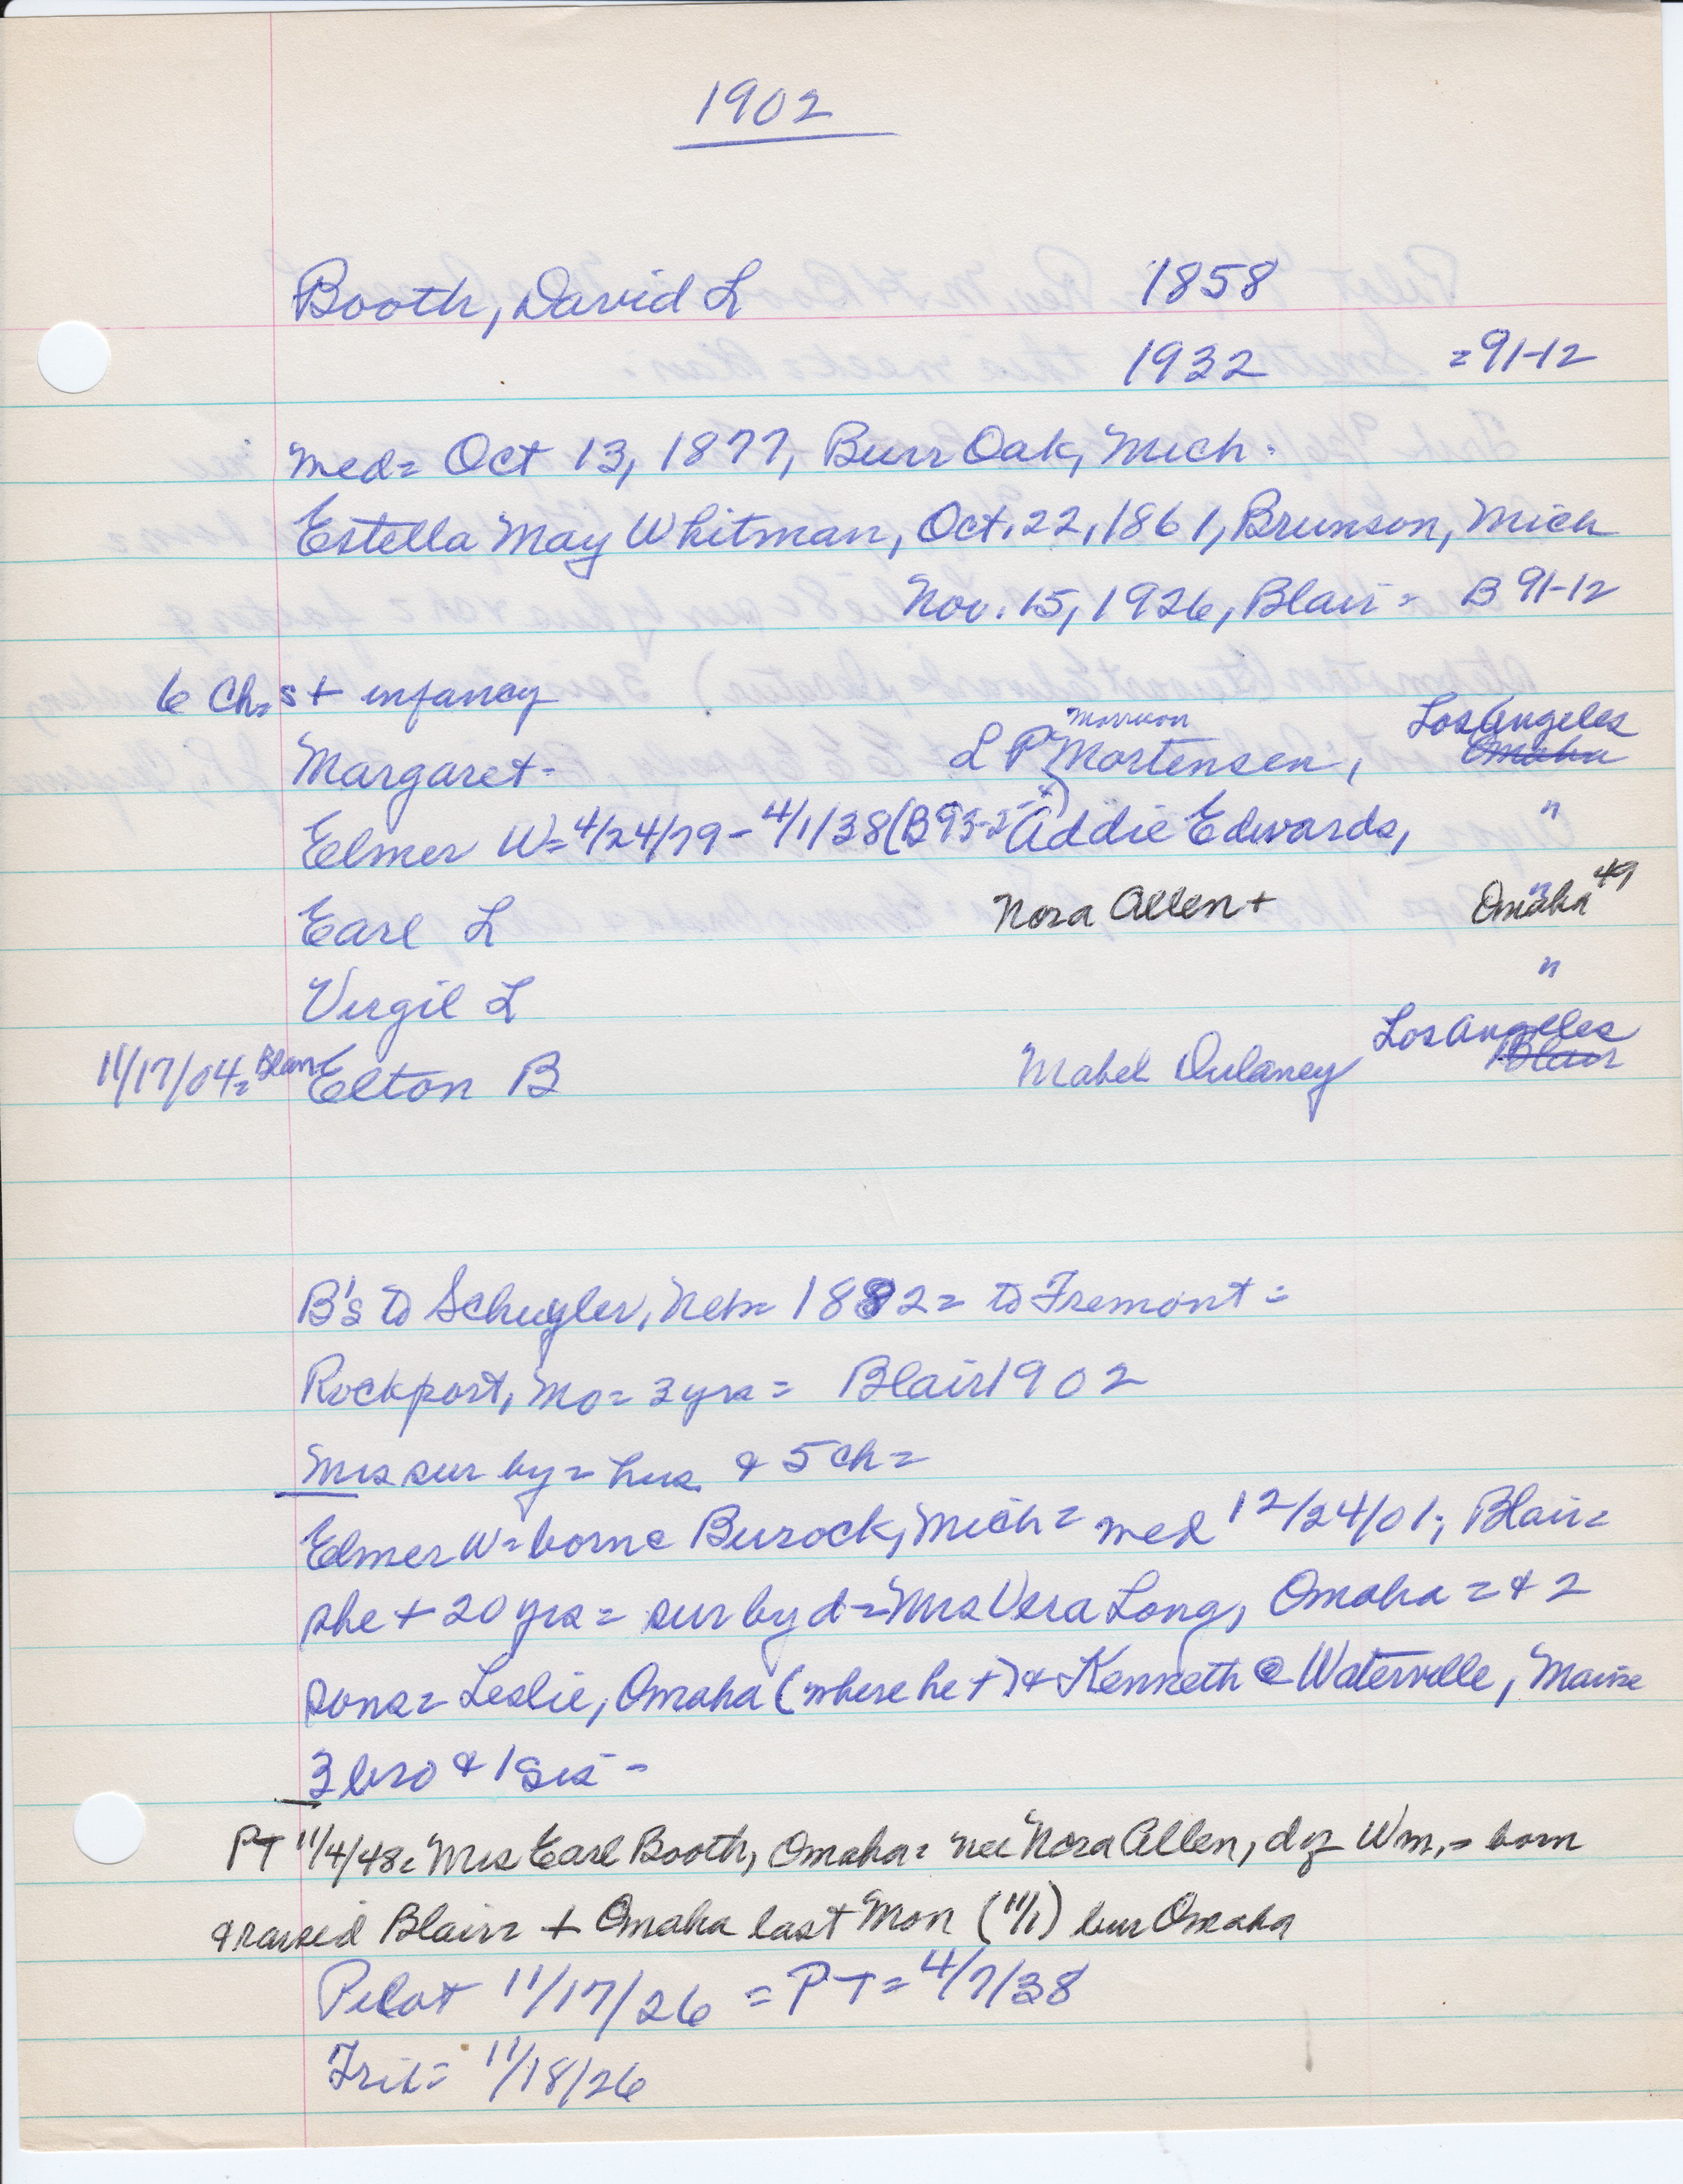 1902
Booth, David L 1858
1932 = 91-12
Med= Oct 13, 1877, Burr Oak, Mich.
Estella May Whitman, Oct. 22, 1861, Brunson, Mich
Nov. 15, 1926, Blair = B 91-12
6 Ch= st infancy
Margaret- L P Mortensen, Los Angeles Omaha
Elmer W= 4/24/79 - 4/1/38 (B93-2 Addie Edwards, "
Earl L Nora Allen + Omaha 49
Virgil L "
11/17/04= Blair Elton B Mabel Dulaney Los Angeles Blair
B's to Schuyler, Neb= 1882= to Fremont =
Rockport, Mo= 3 yrs = Blair 1902
Mrs sur by = hus & 5 ch =
Elmer W= born = Burock, Mich = med 12/24/01, Blair=
she + 20 yrs = sur by d= Mrs Vera Long, Omaha = & 2
sons= Leslie, Omaha (where he +) & Kenneth @ Waterville, Maine
3 bro & 1 sis -
PT 11/4/48= Mrs Earl Booth, Omaha= nee Nora Allen, d of Wm, = born
& raised Blair= + Omaha last Mon (11/1) bur Omaha
Pilot 11/17/26 = PT= 4/7/38
Trib= 11/18/26